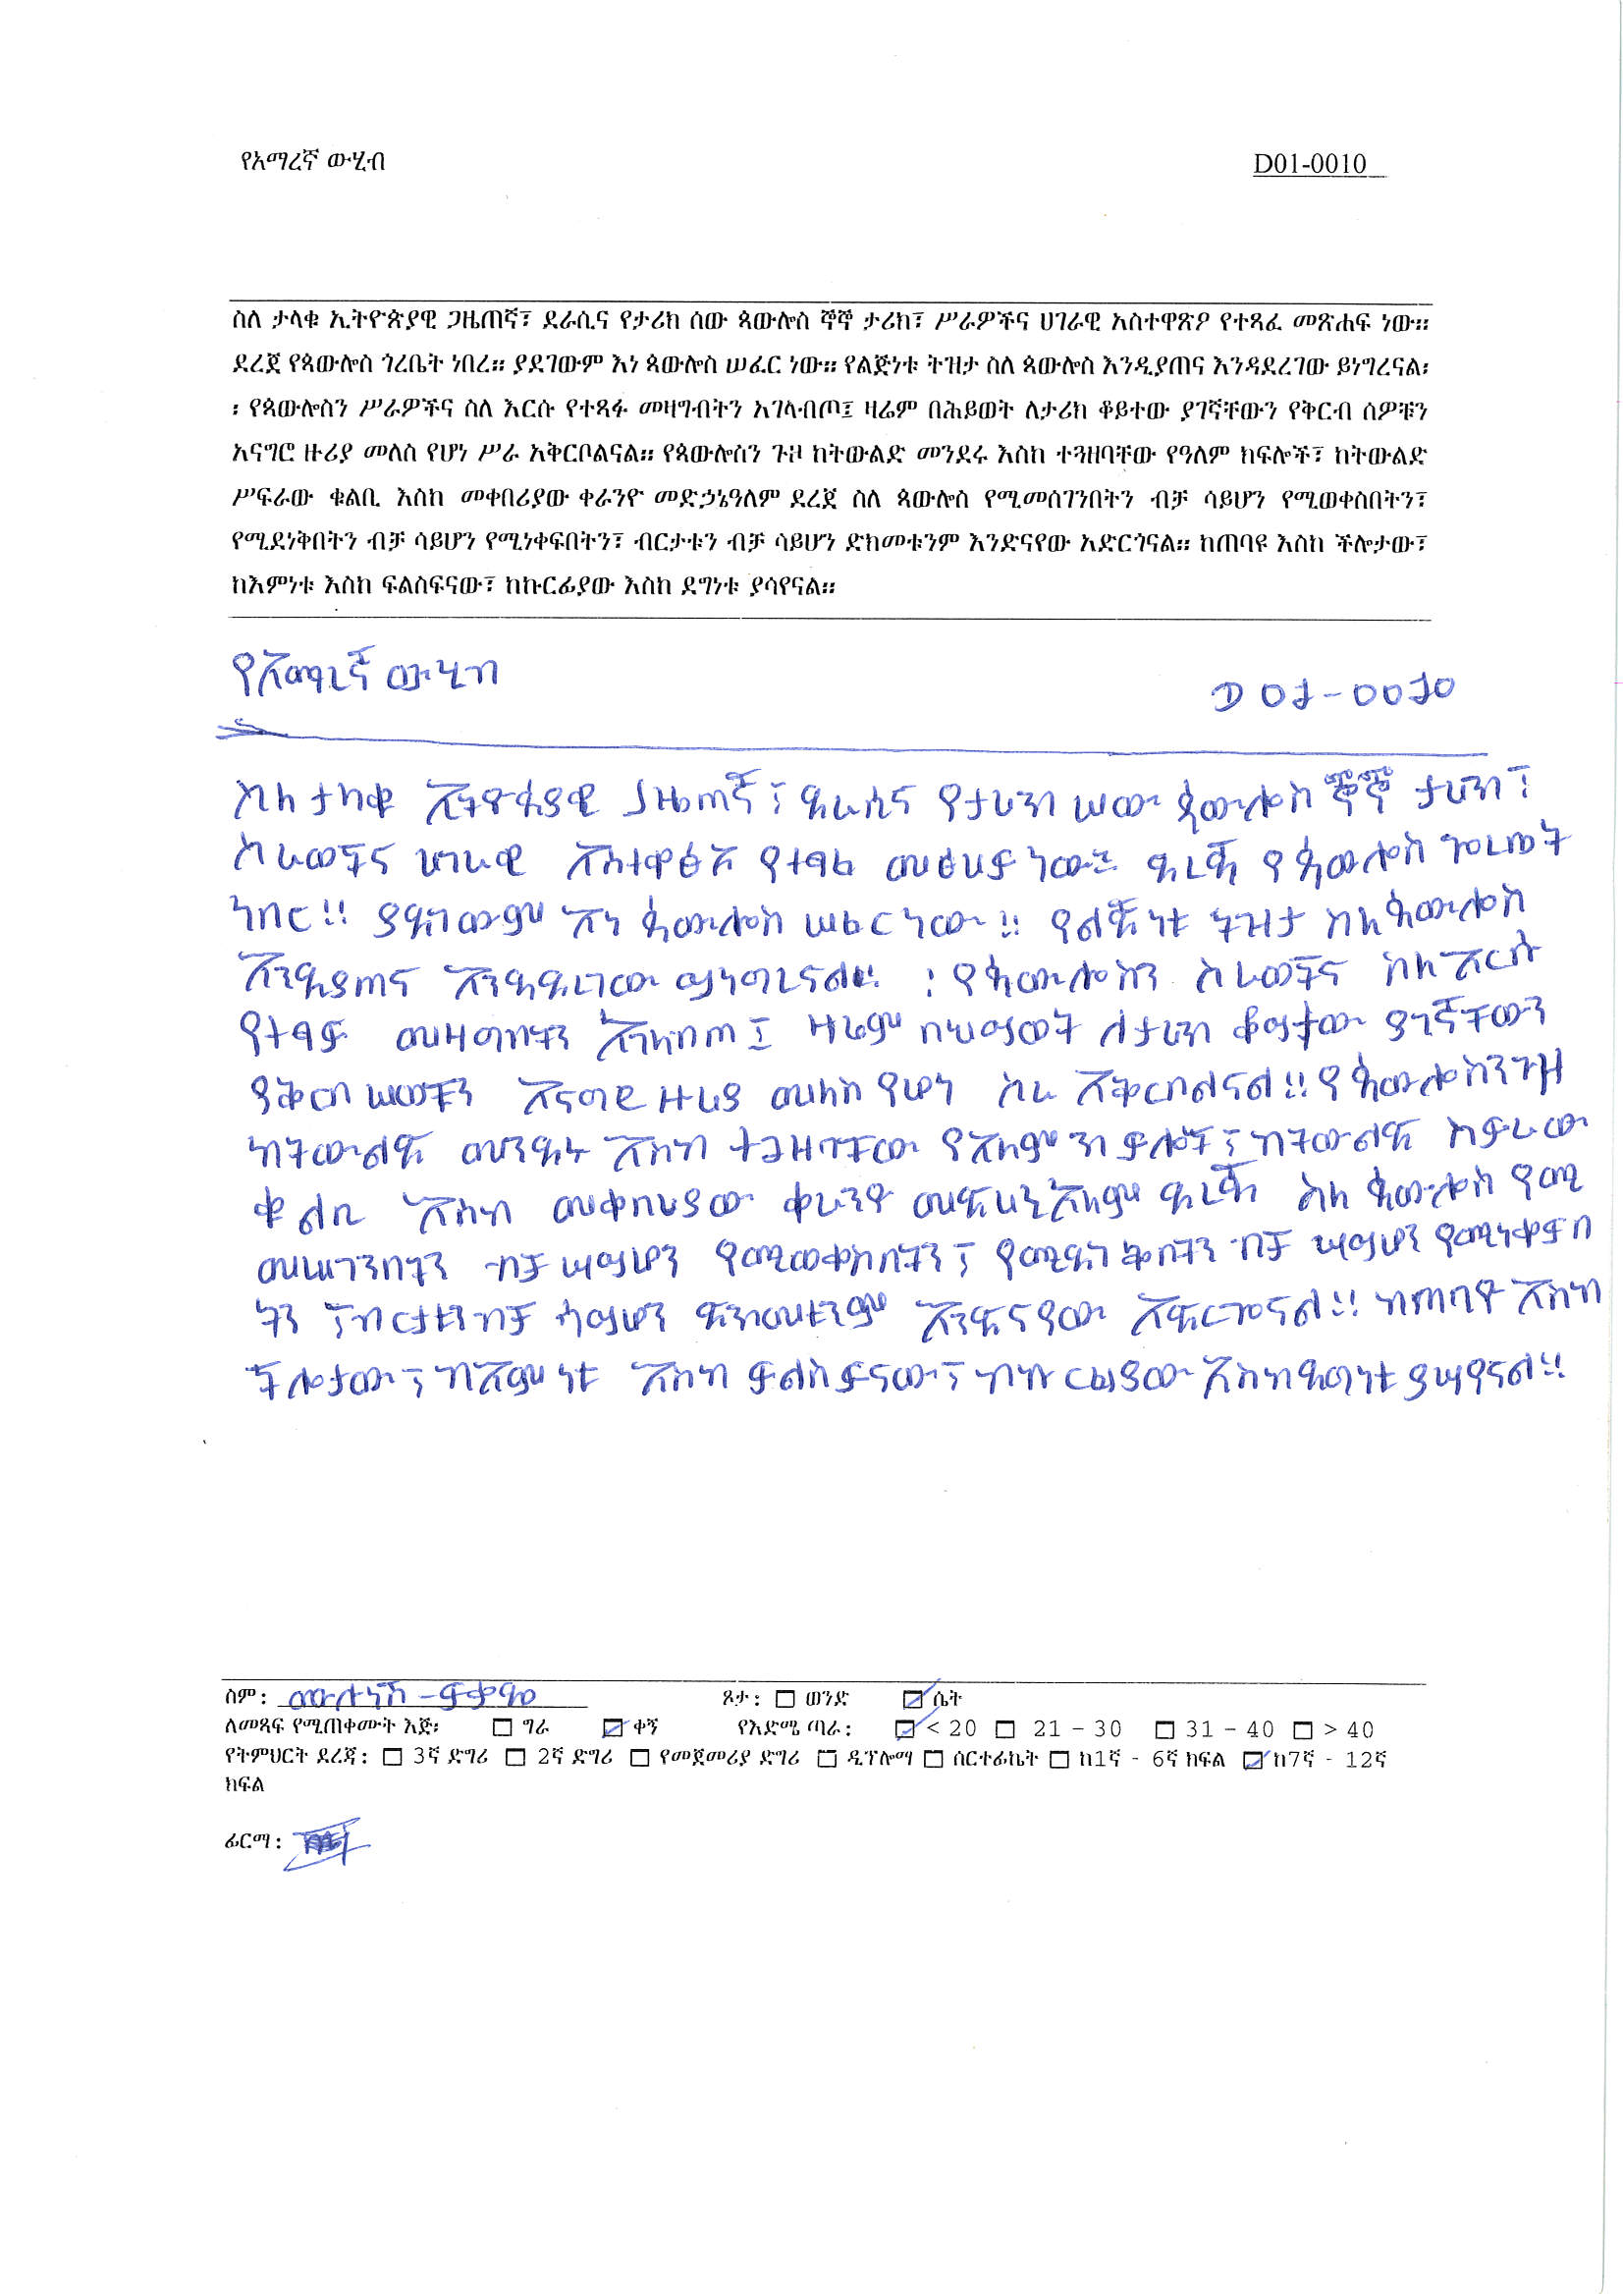 የአማረኛ ውሂብ D01-0010
ስለ ታላቁ ኢትዮጵያዊ ጋዜጠኛ፣ ደራሲና የታሪክ ሰው ጳውሎስ ኞኞ ታሪክ፣ ሥራዎችና ሀገራዊ አስተዋጽዖ የተጻፈ መጽሐፍ ነው።
ደረጀ የጳውሎስ ጎረቤት ነበረ። ያደገውም እነ ጳውሎስ ሠፈር ነው። የልጅነቱ ትዝታ ስለ ጳውሎስ እንዲያጠና እንዳደረገው ይነግረናል፡
፡ የጳውሎስን ሥራዎችና ስለ እርሱ የተጻፉ መዛግብትን አገላብጦ፤ ዛሬም በሕይወት ለታሪክ ቆይተው ያገኛቸውን የቅርብ ሰዎቹን
አናግሮ ዙሪያ መለስ የሆነ ሥራ አቅርቦልናል። የጳውሎስን ጉዞ ከትውልድ መንደሩ እስከ ተጓዘባቸው የዓለም ክፍሎች፣ ከትውልድ
ሥፍራው ቁልቢ እስከ መቀበሪያው ቀራንዮ መድኃኔዓለም ደረጀ ስለ ጳውሎስ የሚመሰገንበትን ብቻ ሳይሆን የሚወቀስበትን፣
የሚደነቅበትን ብቻ ሳይሆን የሚነቀፍበትን፣ ብርታቱን ብቻ ሳይሆን ድክመቱንም እንድናየው አድርጎናል። ከጠባዩ እስከ ችሎታው፣
ከእምነቱ እስከ ፍልስፍናው፣ ከኩርፊያው እስከ ደግነቱ ያሳየናል።
የአማረኛ ውሂብ
D 01-0010
ስለ ታላቁ ኢትዮጵያዊ ጋዜጠኛ፣ ደራሲና የታሪክ ሠው ጳውሎስ ኞኞ ታሪክ፣
ስራወችና ሀገራዊ አስተዋፅኦ የተፃፈ መፅሀፍ ነው። ደረጀ የጳውሎስ ጎረቤት
ነበር።‌ ያደገውም እነ ጳውሎስ ሠፈር ነው። የልጅነቱ ትዝታ ስለ ጳውሎስ
እንዲያጠና እንዳደረገው ይነግረናል። ፡የጳውሎስን ስራወችና ስለ እርሱ
የተፃፉ መዛግብትን አገላብጦ፤ ዛሬም በህይወት ለታሪክ ቆይተው ያገኛቸውን
የቅርብ ሠወቹን አናግሮ ዙሪያ መለስ የሆነ ስራ አቅርቦልናል።የጳውሎስን ጉዞ
ከትውልድ መንደሩ እስከ ተጓዘባቸው የአለም ክፍሎች፣ ከትውልድ ስፍራው
ቁልቢ እስከ መቀበሪያው ቀራንዮ መድሀኒአለም ደረጀ ስለ ጳውሎስ የሚ
መሠገንበትን ብቻ ሣይሆን የሚወቀስበትን፣ የሚደነቅበትን ብቻ ሣይሆን የሚነቀፍበ
ትን ፣ብርታቱን ብቻ ሳይሆን ድክመቱንም እንድናየው አድርጎናል። ከጠባዩ እስከ
ችሎታው፣ ከእምነቱ እስከ ፍልስፍናው፣ ከኩርፊያው እስከ ደግነቱ ያሣየናል።
ስም፡ ጾታ፡ ወንድ ሴት
ለመጻፍ የሚጠቀሙት እጅ፡ ግራ ቀኝ የእድሜ ጣራ፡ < 20 21 – 30 31 – 40 > 40
የትምህርት ደረጃ፡ 3ኛ ድግሪ 2ኛ ድግሪ የመጀመሪያ ድግሪ ዲፕሎማ ሰርተፊኬት ከ1ኛ - 6ኛ ክፍል ከ7ኛ - 12ኛ
ክፍል
ፊርማ፡